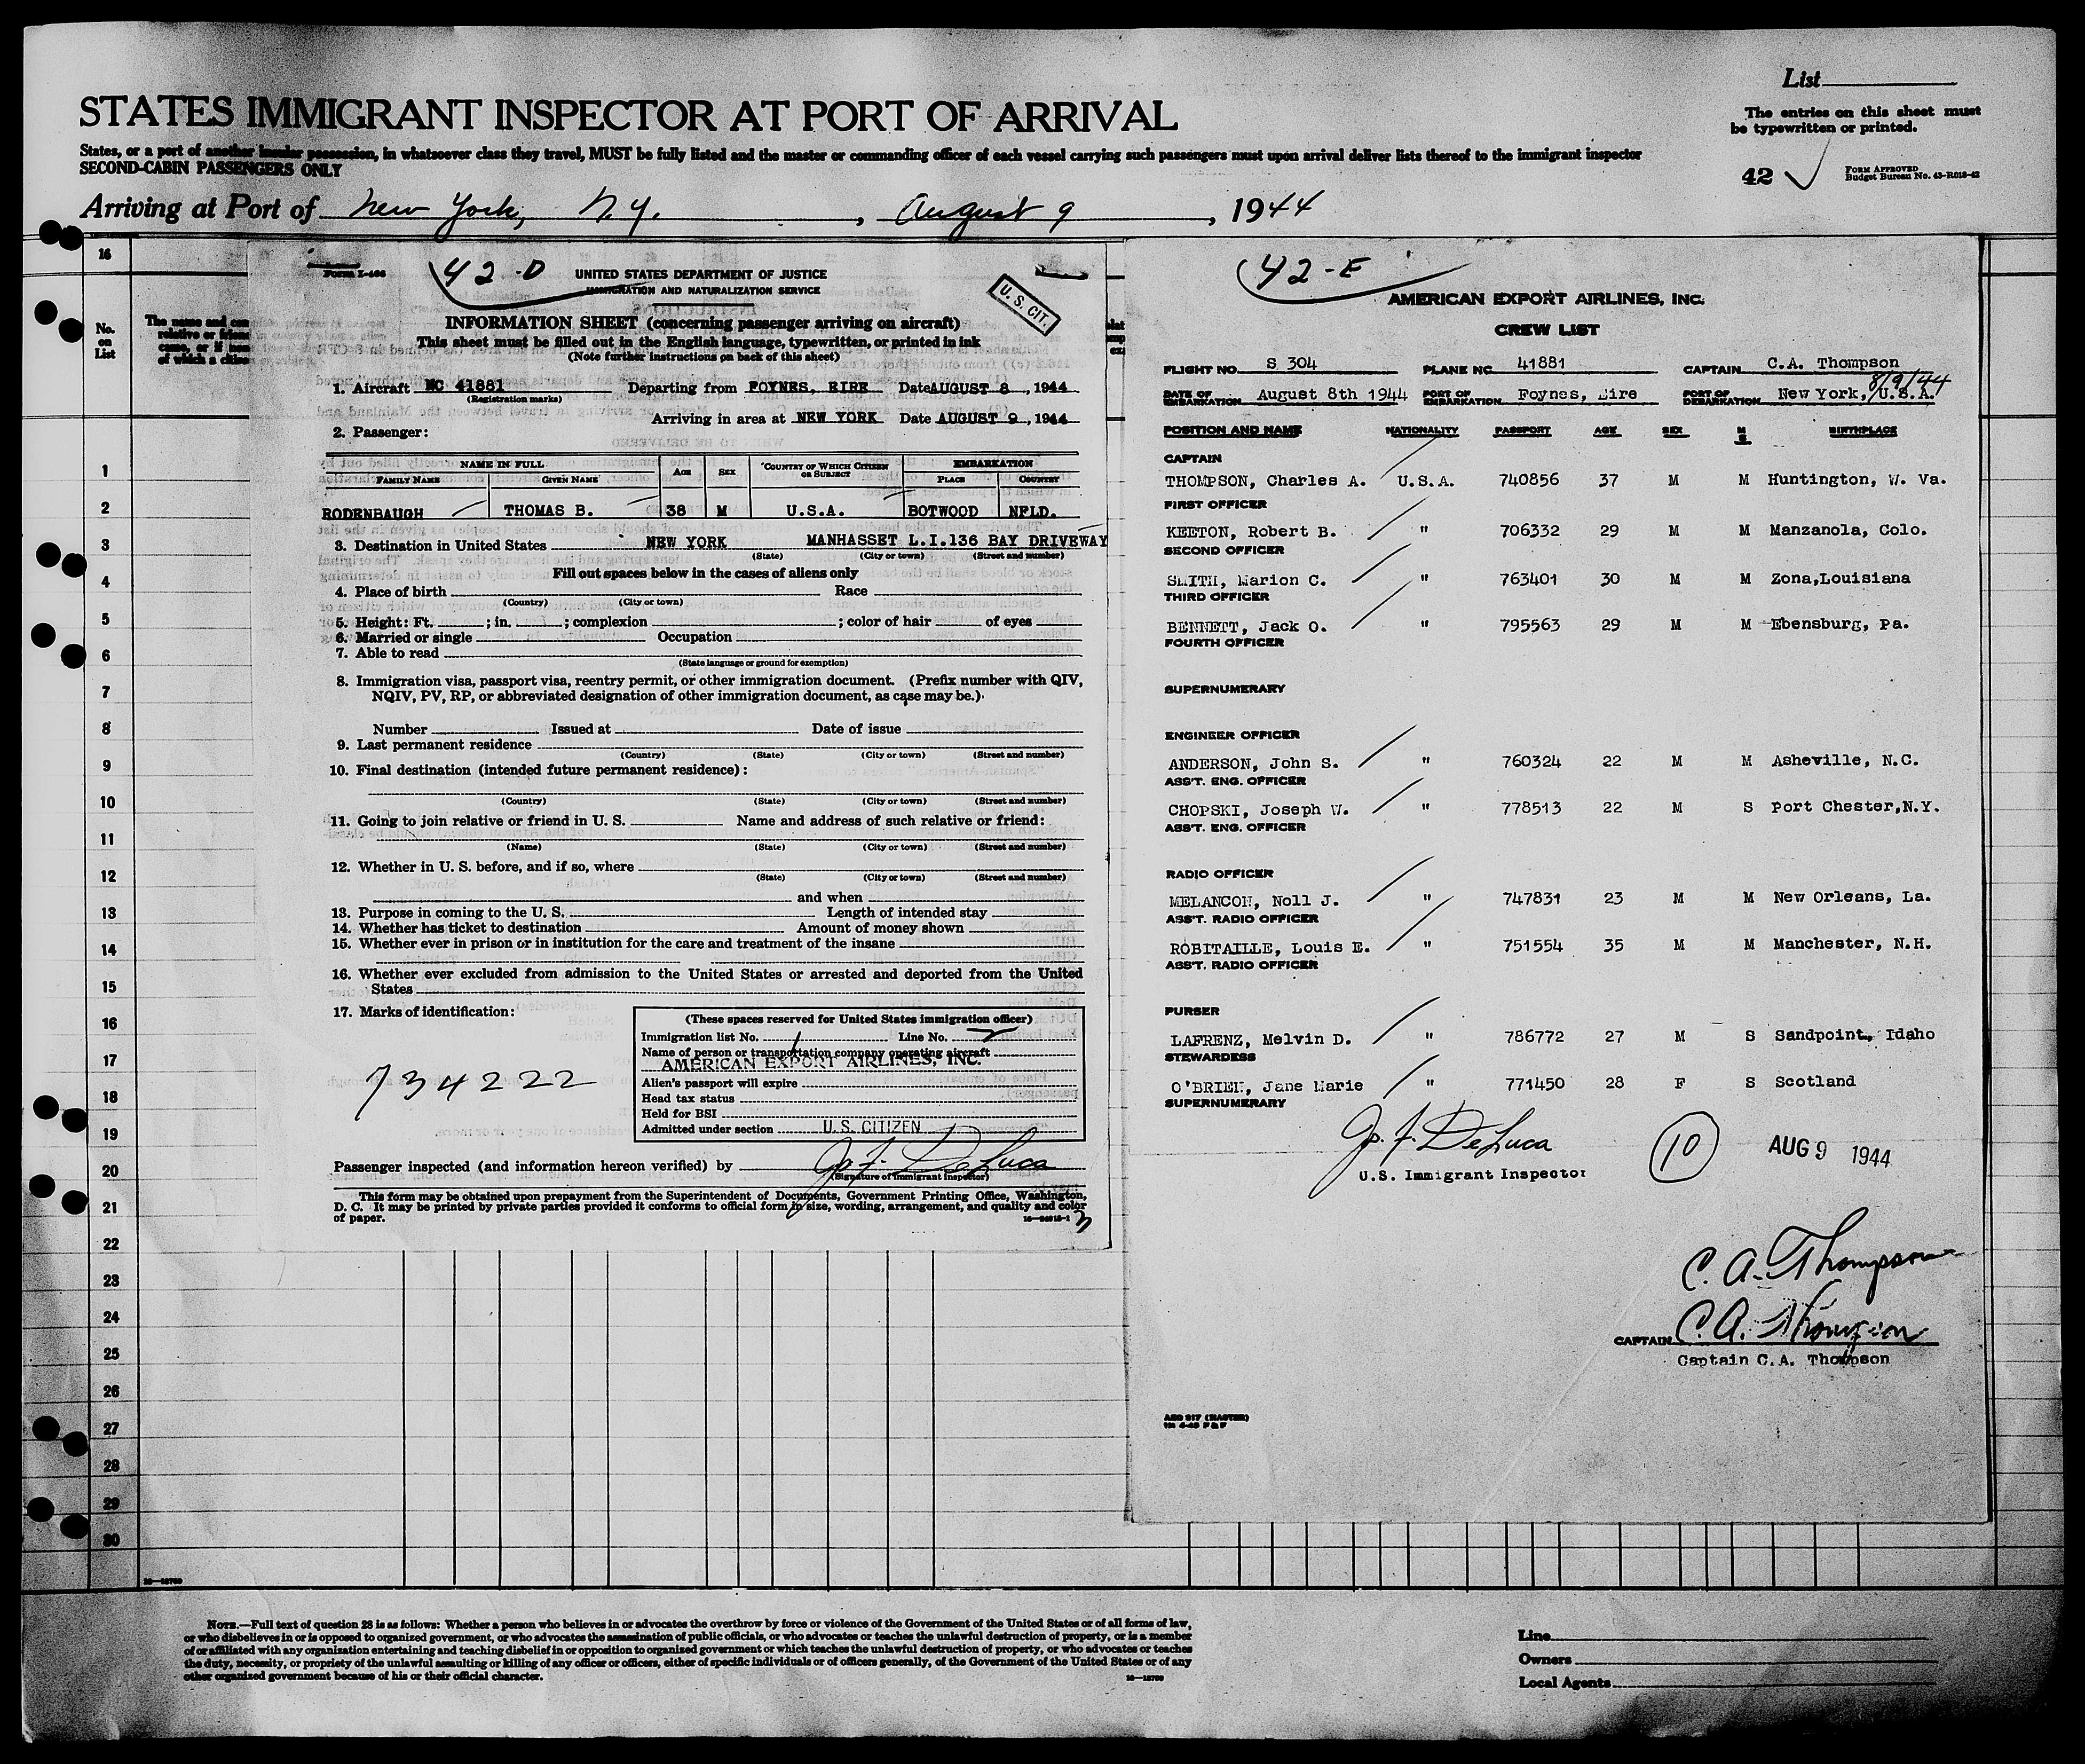 List
STATES IMMIGRANT INSPECTOR AT PORT OF ARRIVAL
The entries on this sheet must
be typewritten or printed.
States, or a port of another insular possession, in whatsoever class they travel, MUST be fully listed and the master or commanding officer of each vessel carrying such passengers must upon arrival deliver lists thereof to the immigrant inspector
SECOND-CABIN PASSENGERS ONLY
42
FORM APPROVED
Budget Bureau No. 43-R018-42
Arriving at Port of New York, N.Y. , August 9 , 1944
16
No.
on
List
The name and
relative or friend
came, or if
of which a
1
2
3
4
5
6
7
8
9
10
11
12
13
14
15
16
17
18
19
20
21
22
23
24
25
26
27
28
29
30
Form I-466
42-D
UNITED STATES DEPARTMENT OF JUSTICE
IMMIGRATION AND NATURALIZATION SERVICE
U. S. CIT.
INFORMATION SHEET (concerning passenger arriving on aircraft)
This sheet must be filled out in the English language, typewritten, or printed in ink
(Note further instructions on back of this sheet)
1. Aircraft NC 41881 Departing from FOYNES, EIRE Date AUGUST 8 , 1944
(Registration marks)
Arriving in area at NEW YORK Date AUGUST 9 , 1944
2. Passenger:
NAME IN FULL AGE SEX COUNTRY OF WHICH CITIZEN OR SUBJECT EMBARKATION
FAMILY NAME GIVEN NAME PLACE COUNTRY
RODENBAUGH THOMAS B. 38 M U.S.A. BOTWOOD NFLD.
3. Destination in United States NEW YORK MANHASSET L.I. 136 BAY DRIVEWAY
(State) (City or town) (Street and number)
Fill out spaces below in the cases of aliens only
4. Place of birth Race
(Country) (City or town)
5. Height: Ft. ; in. ; complexion ; color of hair of eyes
6. Married or single Occupation
7. Able to read
(State language or ground for exemption)
8. Immigration visa, passport visa, reentry permit, or other immigration document. (Prefix number with QIV,
NQIV, PV, RP, or abbreviated designation of other immigration document, as case may be.)
Number Issued at Date of issue
9. Last permanent residence
(Country) (State) (City or town) (Street and number)
10. Final destination (intended future permanent residence):
(Country) (State) (City or town) (Street and number)
11. Going to join relative or friend in U. S. Name and address of such relative or friend:
(Name) (State) (City or town) (Street and number)
12. Whether in U. S. before, and if so, where
(State) (City or town) (Street and number)
and when
13. Purpose in coming to the U. S. Length of intended stay
14. Whether has ticket to destination Amount of money shown
15. Whether ever in prison or in institution for the care and treatment of the insane
16. Whether ever excluded from admission to the United States or arrested and deported from the United
States
17. Marks of identification:
734222
(These spaces reserved for United States immigration officer)
Immigration list No. 1 Line No. 2
Name of person or transportation company operating aircraft
AMERICAN EXPORT AIRLINES, INC.
Alien's passport will expire
Head tax status
Held for BSI
Admitted under section U.S. CITIZEN
Passenger inspected (and information hereon verified) by Jos. F. DeLuca
(Signature of immigrant inspector)
This form may be obtained upon prepayment from the Superintendent of Documents, Government Printing Office, Washington,
D. C. It may be printed by private parties provided it conforms to official form in size, wording, arrangement, and quality and color
of paper.
42-E
AMERICAN EXPORT AIRLINES, INC.
CREW LIST
FLIGHT NO. S 304 PLANE NO. 41881 CAPTAIN C.A. Thompson
8/9/44
DATE OF EMBARKATION August 8th 1944 PORT OF EMBARKATION Foynes, Eire PORT OF DEBARKATION New York, U.S.A.
POSITION AND NAME NATIONALITY PASSPORT AGE SEX M S BIRTHPLACE
CAPTAIN
THOMPSON, Charles A. U.S.A. 740856 37 M M Huntington, W. Va.
FIRST OFFICER
KEETON, Robert B. " 706332 29 M M Manzanola, Colo.
SECOND OFFICER
SMITH, Marion C. " 763401 30 M M Zona,Louisiana
THIRD OFFICER
BENNETT, Jack O. " 795563 29 M M Ebensburg, Pa.
FOURTH OFFICER
SUPERNUMERARY
ENGINEER OFFICER
ANDERSON, John S. " 760324 22 M M Asheville, N.C.
ASS'T. ENG. OFFICER
CHOPSKI, Joseph W. " 778513 22 M S Port Chester,N.Y.
ASS'T. ENG. OFFICER
RADIO OFFICER
MELANCON, Noll J. " 747831 23 M M New Orleans, La.
ASS'T. RADIO OFFICER
ROBITAILLE, Louis E. " 751554 35 M M Manchester, N.H.
ASS'T. RADIO OFFICER
PURSER
LAFRENZ, Melvin D. " 786772 27 M S Sandpoint, Idaho
STEWARDESS
O'BRIEN, Jane Marie " 771450 28 F S Scotland
SUPERNUMERARY
Jos. F. DeLuca
U.S. Immigrant Inspector
10
AUG 9 1944
C. A. Thompson
CAPTAIN C. A. Thompson
Captain C.A. Thompson
NOTE.—Full text of question 28 is as follows: Whether a person who believes in or advocates the overthrow by force or violence of the Government of the United States or of all forms of law,
or who disbelieves in or is opposed to organized government, or who advocates the assassination of public officials, or who advocates or teaches the unlawful destruction of property, or is a member
of or affiliated with any organization entertaining and teaching disbelief in or opposition to organized government or which teaches the unlawful destruction of property, or who advocates or teaches
the duty, necessity, or propriety of the unlawful assaulting or killing of any officer or officers, either of specific individuals or of officers generally, of the Government of the United States or of any
other organized government because of his or their official character.
Line
Owners
Local Agents